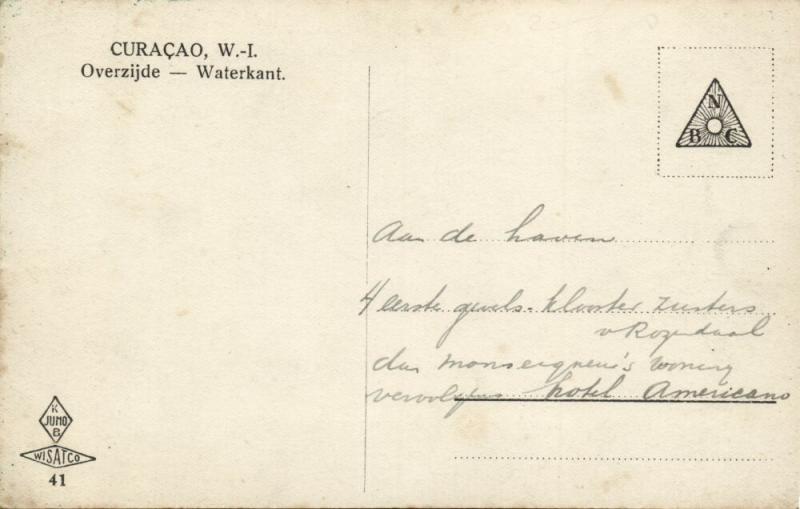 CURAÇAO, W.-I.
Overzijde — Waterkant.
N
B C
Aan de haven
4 eerste gevels - klooster zusters
v Rozendaal
dan Monseigneur's woning
vervolgens hotel Americano
K
JUMO
B
WISATCO
41